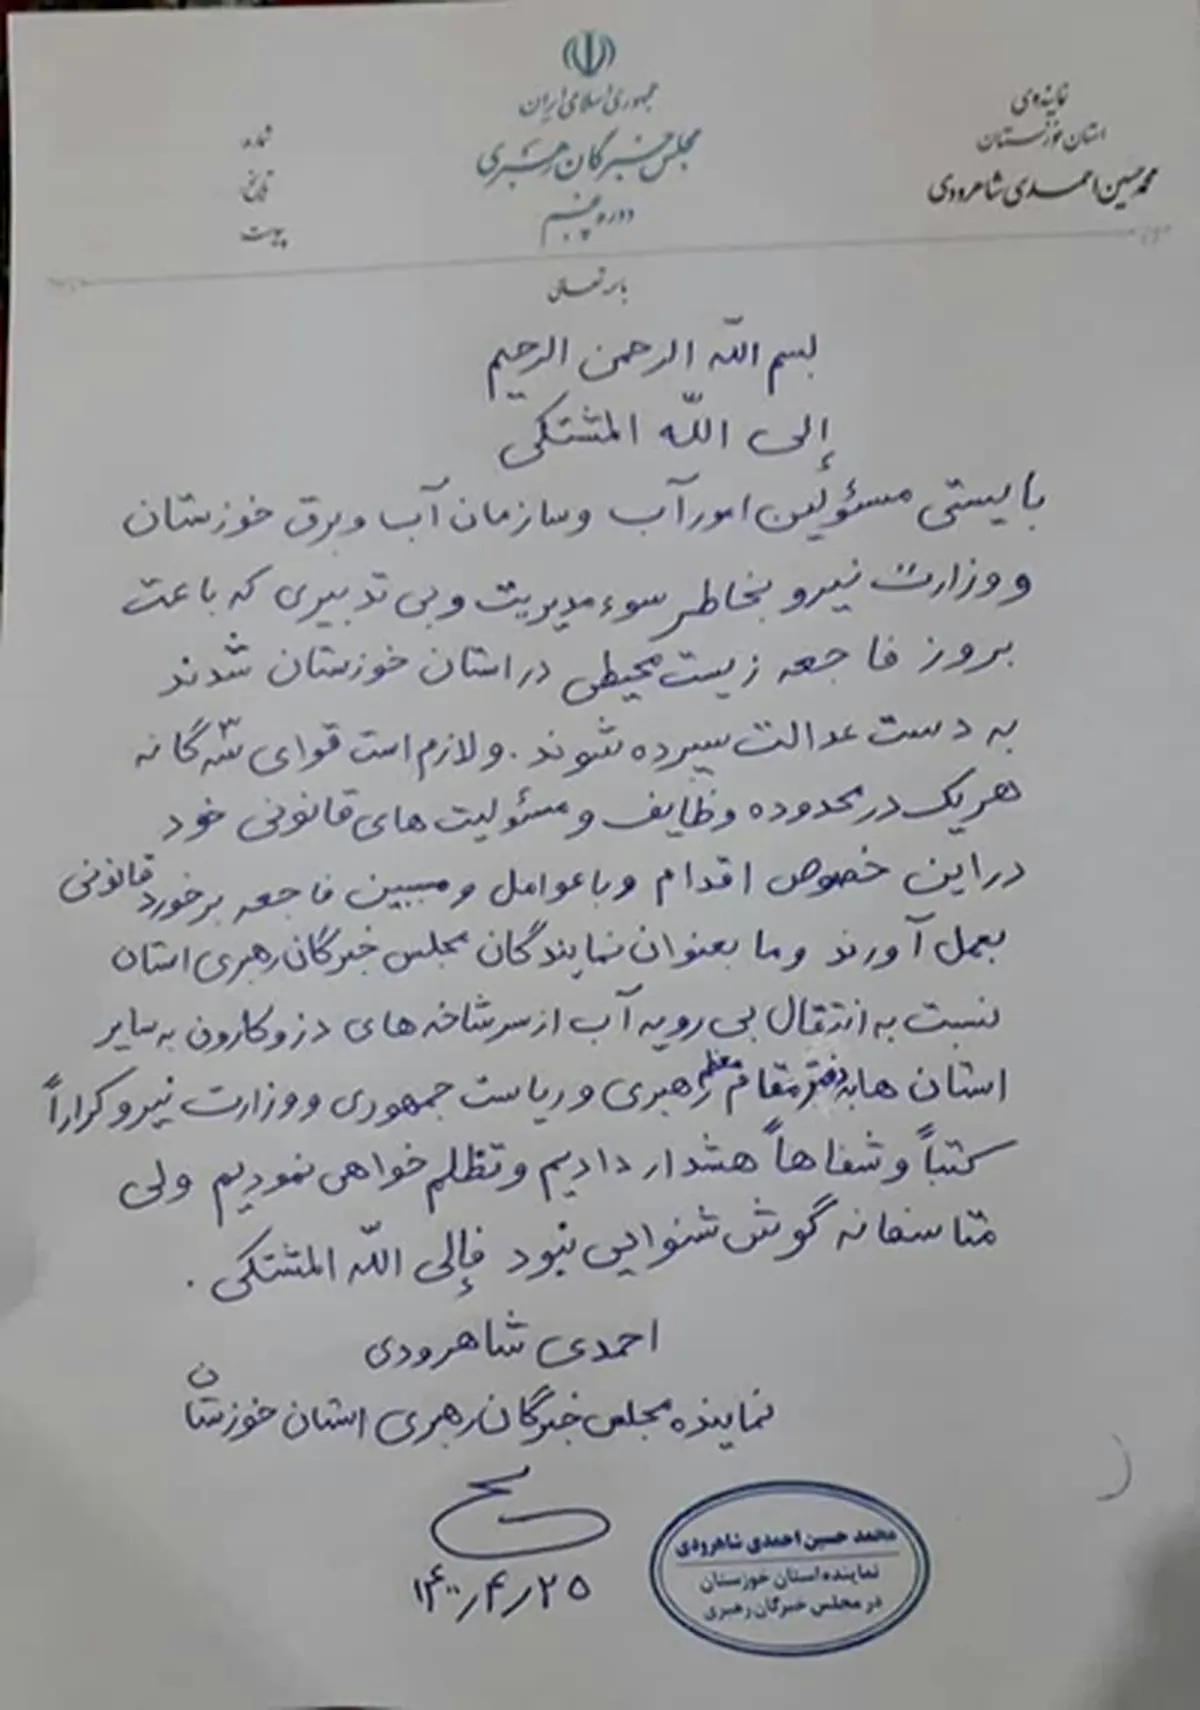 جمهوری اسلامی ایران
مجلس خبرگان رهبری
دوره پنجم
نماینده‌ی
استان خوزستان
محمد حسین احمدی شاهرودی
شماره
تاریخ
پیوست
باسمه تعالی
بسم الله الرحمن الرحیم
إلی اللّه المشتکی
بایستی مسئولین امور آب وسازمان آب وبرق خوزستان
ووزارت نیرو بخاطر سوء مدیریت وبی تدبیری که باعث
بروز فاجعه زیست محیطی در استان خوزستان شدند
به دست عدالت سپرده شوند. ولازم است قوای سه گانه
هریک در محدوده وظایف ومسئولیت های قانونی خود
دراین خصوص اقدام وباعوامل ومسببین فاجعه برخورد قانونی
بعمل آورند وما بعنوان نمایندگان مجلس خبرگان رهبری استان
نسبت به انتقال بی رویه آب از سرشاخه های دز وکارون به سایر
استان ها به دفتر مقام معظم رهبری وریاست جمهوری ووزارت نیرو کراراً
کتباً وشفاهاً هشدار دادیم وتظلم خواهی نمودیم ولی
متاسفانه گوش شنوایی نبود فإلی اللّه المشتکی.
احمدی شاهرودی
نماینده مجلس خبرگان رهبری استان خوزستان
۱۴۰۰/۴/۲۵
محمد حسین احمدی شاهرودی
نماینده استان خوزستان
در مجلس خبرگان رهبری